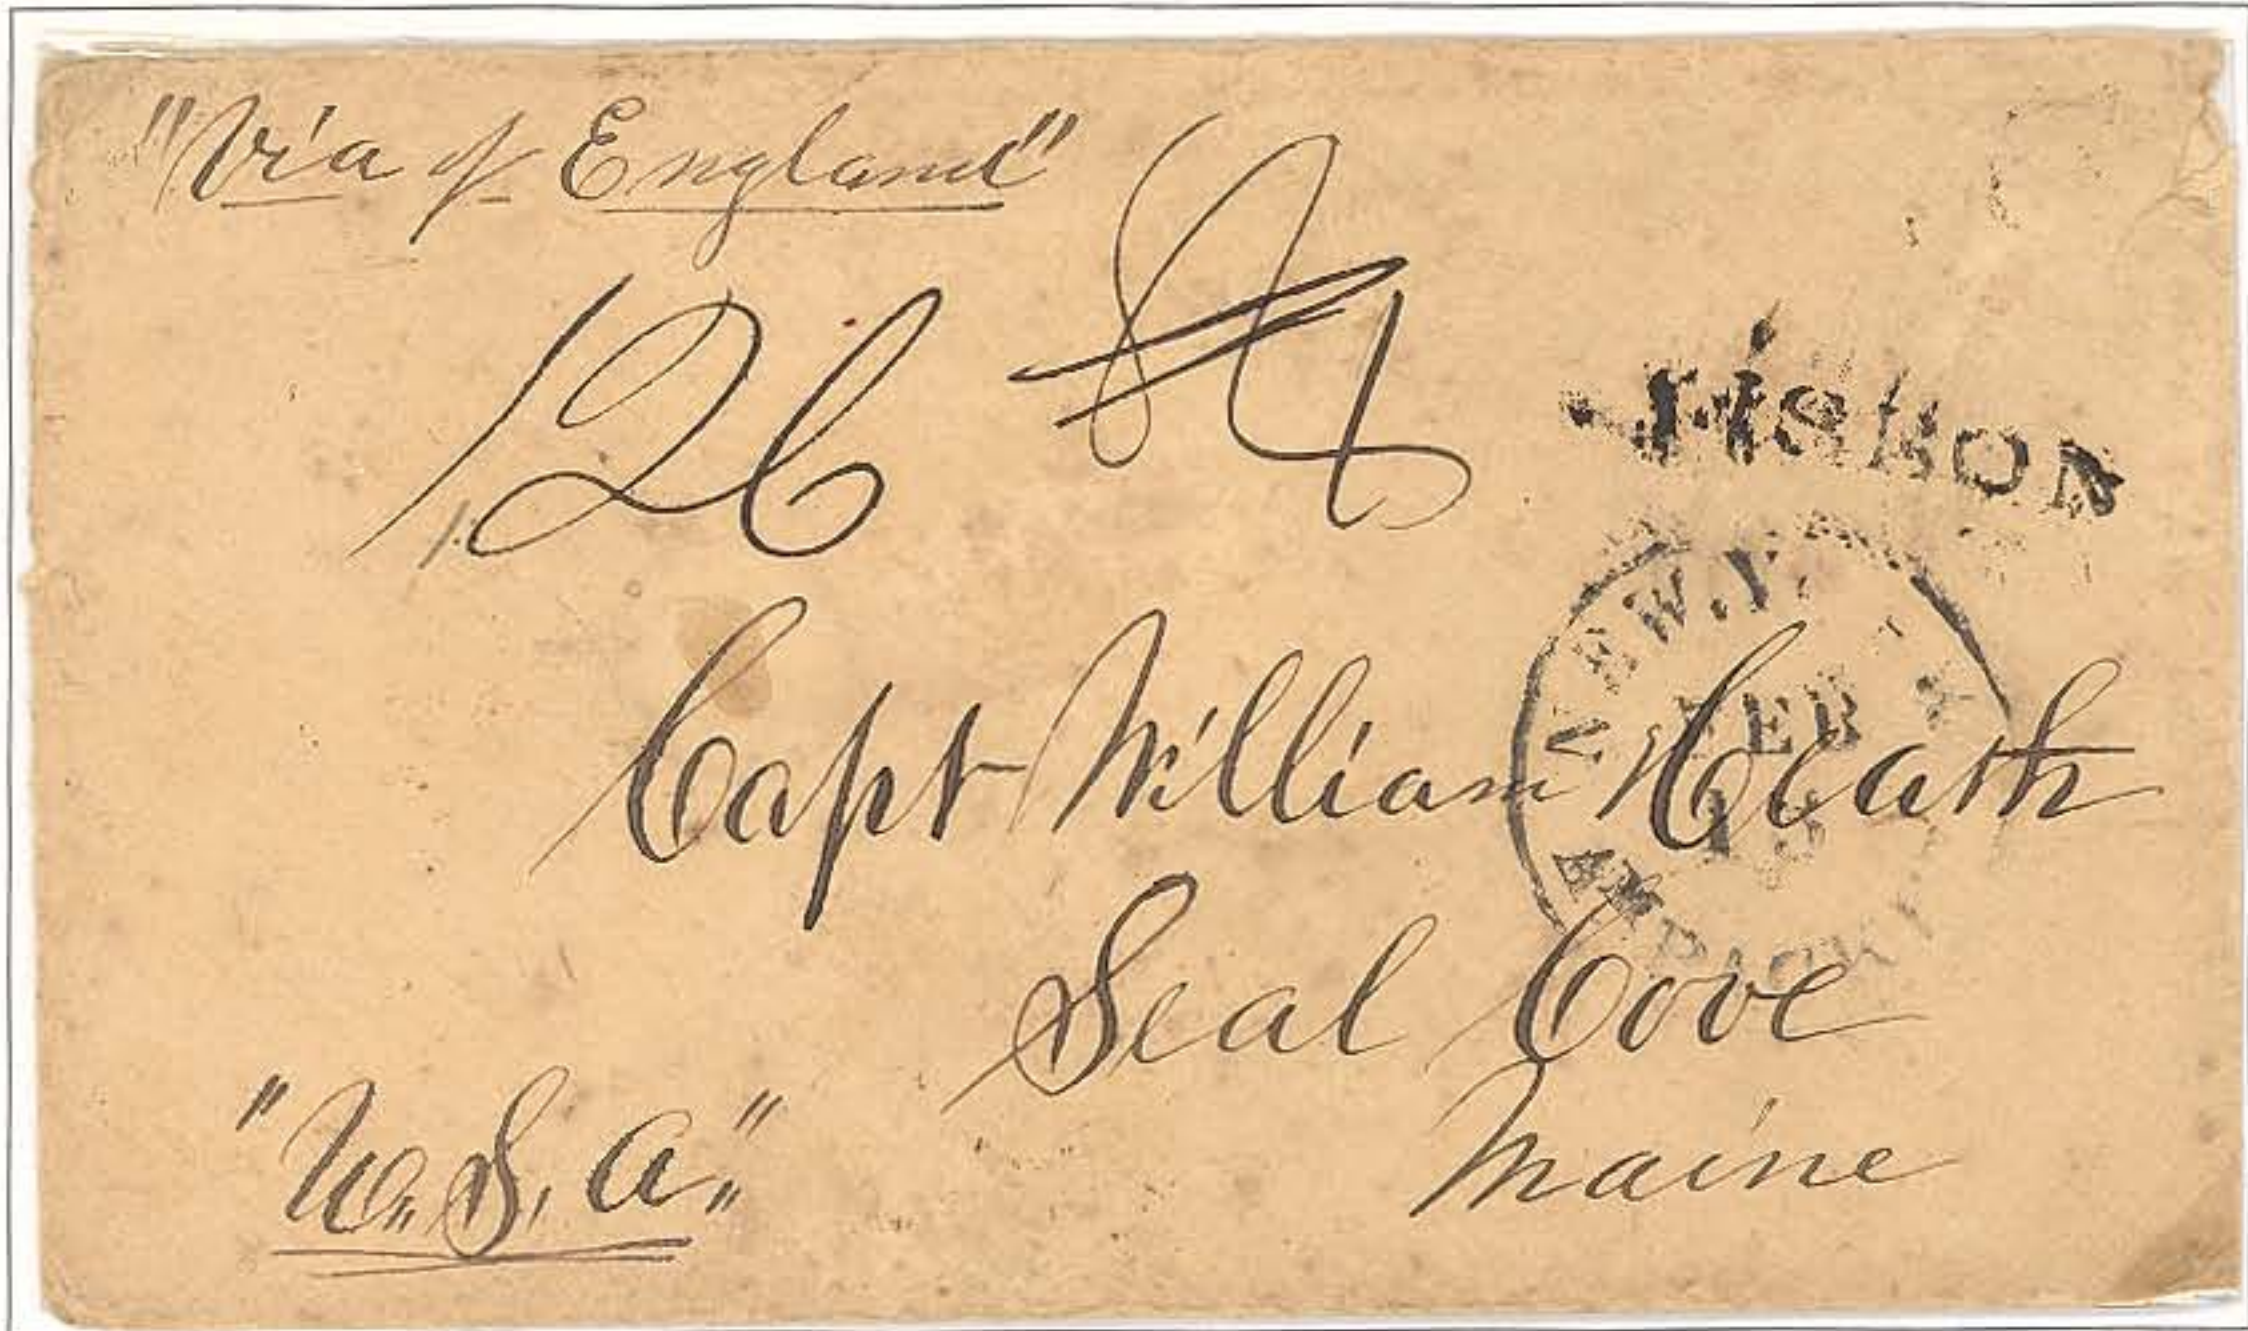 "Via of England"
126
LISBON
NEW.Y.
FEB
Capt William Heath
Seal Cove
Maine
"U.S.A."